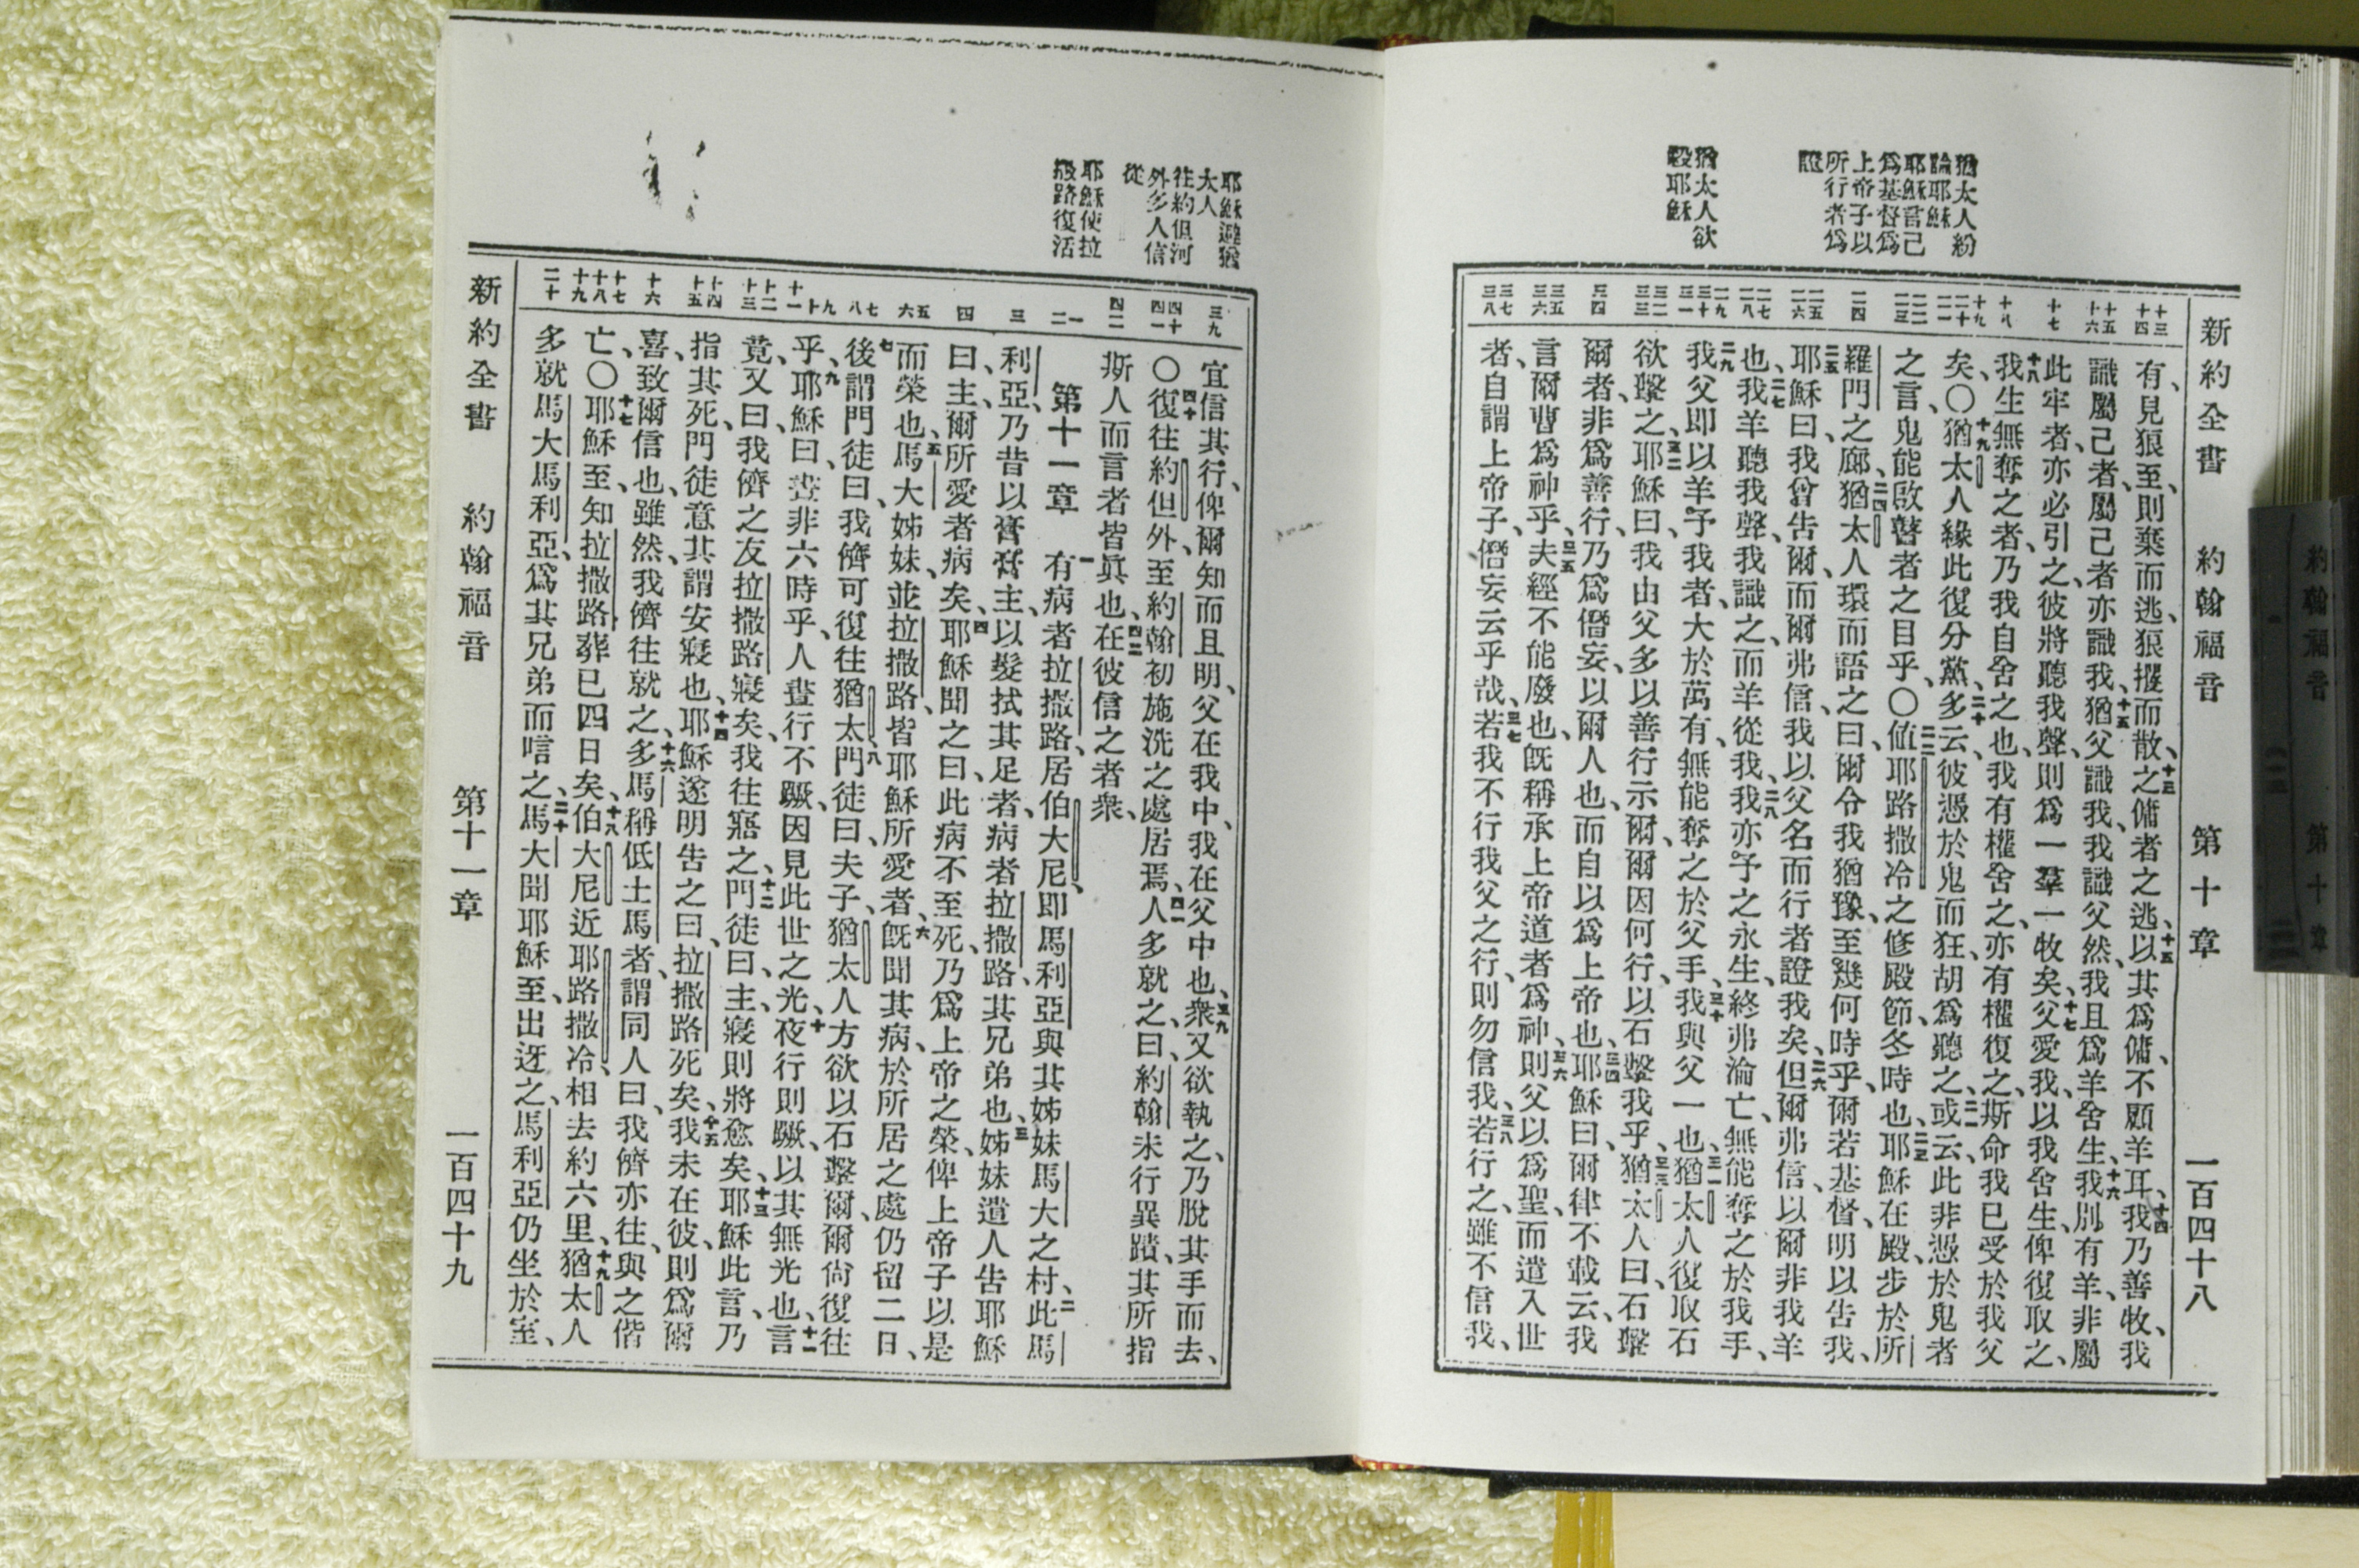 猶太人紛
論耶穌
耶穌言己
爲基督爲
上帝子以
所行者爲
證
猶太人欲
殺耶穌
新約全書 約翰福音 第十章 一百四十八
十三
十四
十五
十六
十七
十八
十九
二十
二一
二二
二三
二四
二五
二六
二七
二八
二九
三十
三一
三二
三三
三四
三五
三六
三七
三八
有、見狼至、則棄而逃、狼攫而散之、十三傭者之逃、以其爲傭、不顧羊耳、十四我乃善牧、我
識屬己者、屬己者亦識我、十五猶父識我、我識父然、我且爲羊舍生、十六我別有羊、非屬
此牢者、亦必引之、彼將聽我聲、則爲一羣一牧矣、十七父愛我、以我舍生、俾復取之、
十八我生無奪之者、乃我自舍之也、我有權舍之、亦有權復之、斯命我已受於我父
矣、〇十九猶太人緣此復分黨、二十多云、彼憑於鬼而狂、胡爲聽之、二一或云、此非憑於鬼者
之言、鬼能啟瞽者之目乎、〇二二値耶路撒冷之修殿節、冬時也、二三耶穌在殿、步於所
羅門之廊、二四猶太人環而語之曰、爾令我猶豫、至幾何時乎、爾若基督、明以告我、
二五耶穌曰、我曾告爾、而爾弗信、我以父名而行者證我矣、二六但爾弗信、以爾非我羊
也、二七我羊聽我聲、我識之、而羊從我、二八我亦予之永生、終弗淪亡、無能奪之於我手、
二九我父卽以羊予我者、大於萬有、無能奪之於父手、三十我與父一也、三一猶太人復取石
欲擊之、三二耶穌曰、我由父多以善行示爾、爾因何行、以石擊我乎、三三猶太人曰、石擊
爾者、非爲善行、乃爲僭妄、以爾人也、而自以爲上帝也、三四耶穌曰、爾律不載云、我
言爾曹爲神乎、三五夫經不能廢也、旣稱承上帝道者爲神、三六則父以爲聖、而遣入世
者、自謂上帝子、僭妄云乎哉、三七若我不行我父之行、則勿信我、三八若行之、雖不信我、
耶穌避猶
太人
往約但河
外多人信
從
耶穌使拉
撒路復活
三九
四十
四一
四二
一
二
三
四
五
六
七
八
九
十
十一
十二
十三
十四
十五
十六
十七
十八
十九
二十
宜信其行、俾爾知而且明、父在我中、我在父中也、三九衆又欲執之、乃脫其手而去、
〇四十復往約但外、至約翰初施洗之處居焉、四一人多就之、曰、約翰未行異蹟、其所指
斯人而言者皆眞也、四二在彼信之者衆、
第十一章 一有病者拉撒路、居伯大尼、卽馬利亞與其姊妹馬大之村、二此馬
利亞、乃昔以膏膏主、以髮拭其足者、病者拉撒路、其兄弟也、三姊妹遣人告耶穌
曰、主、爾所愛者病矣、四耶穌聞之曰、此病不至死、乃爲上帝之榮、俾上帝子以是
而榮也、五馬大姊妹、並拉撒路、皆耶穌所愛者、六旣聞其病、於所居之處仍留二日、
七後謂門徒曰、我儕可復往猶太、八門徒曰、夫子、猶太人方欲以石擊爾、爾尚復往
乎、九耶穌曰、晝非六時乎、人晝行不蹶、因見此世之光、十夜行則蹶、以其無光也、十一言
竟、又曰、我儕之友拉撒路寢矣、我往寤之、十二門徒曰、主、寢則將愈矣、十三耶穌此言、乃
指其死、門徒意其謂安寢也、十四耶穌遂明告之曰、拉撒路死矣、十五我未在彼、則爲爾
喜、致爾信也、雖然、我儕往就之、十六多馬稱低土馬者、謂同人曰、我儕亦往、與之偕
亡、〇十七耶穌至、知拉撒路葬已四日矣、十八伯大尼近耶路撒冷、相去約六里、十九猶太人
多就馬大馬利亞、爲其兄弟而唁之、二十馬大聞耶穌至、出迓之、馬利亞仍坐於室、
新約全書 約翰福音 第十一章 一百四十九